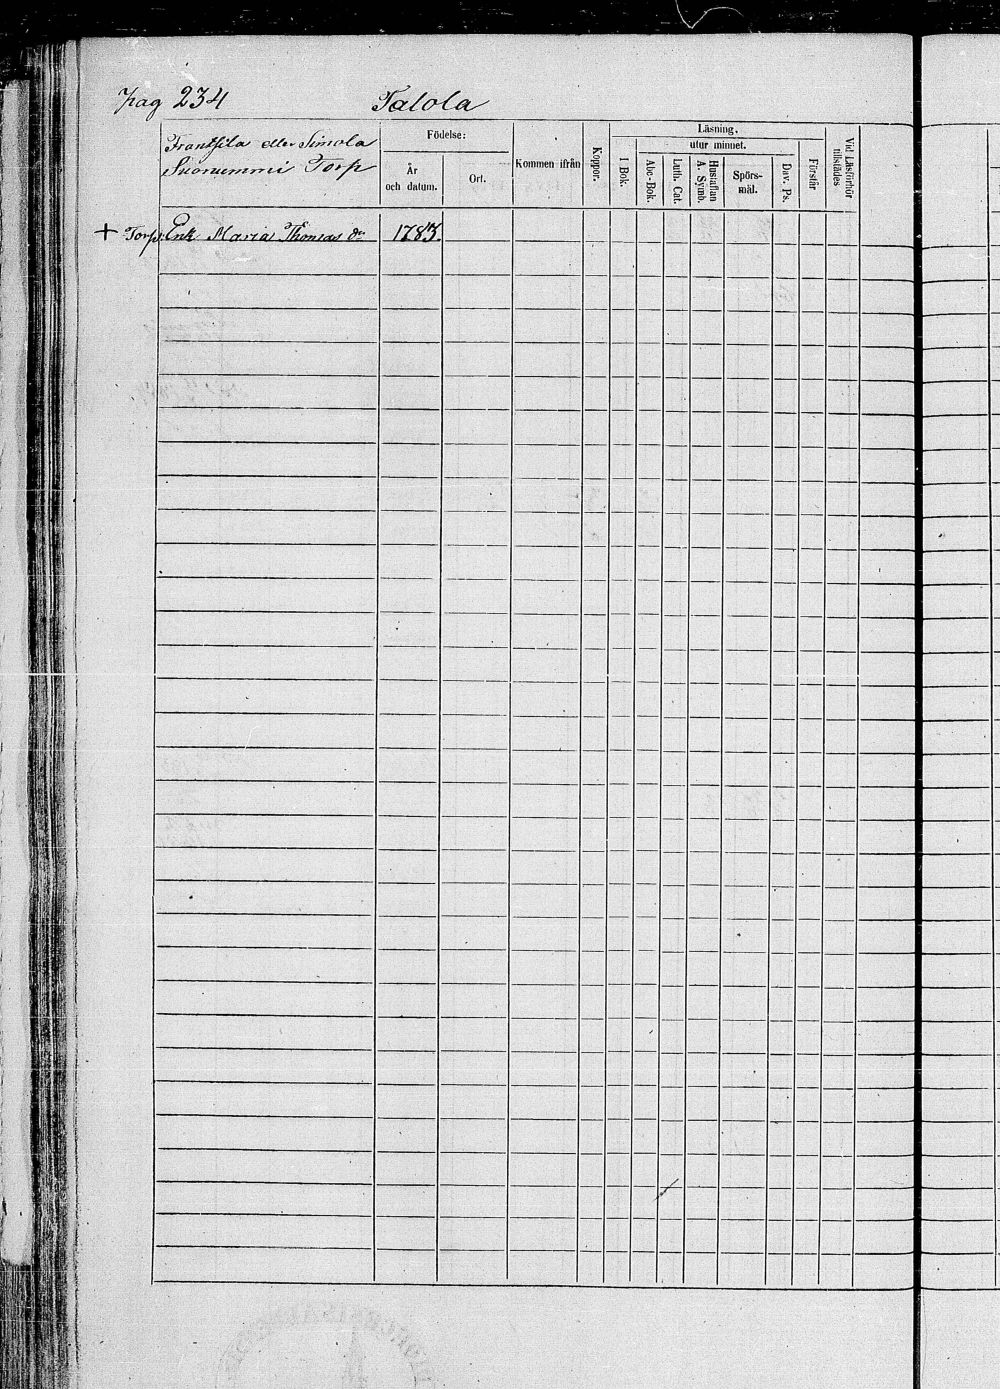 pag 234 Talola
Frantsila eller Simola
Suonummi Torp
Födelse:
År
och datum.
Ort.
Kommen ifrån
Koppor.
Läsning.
utur minnet.
I Bok.
Abc Bok.
Luth. Cat.
Hustaflan
A. Symb.
Spörs-
mål.
Dav. Ps.
Förstår
Vid Läsförhör
tillstädes
+ Torp: Enk Maria Thomas dr